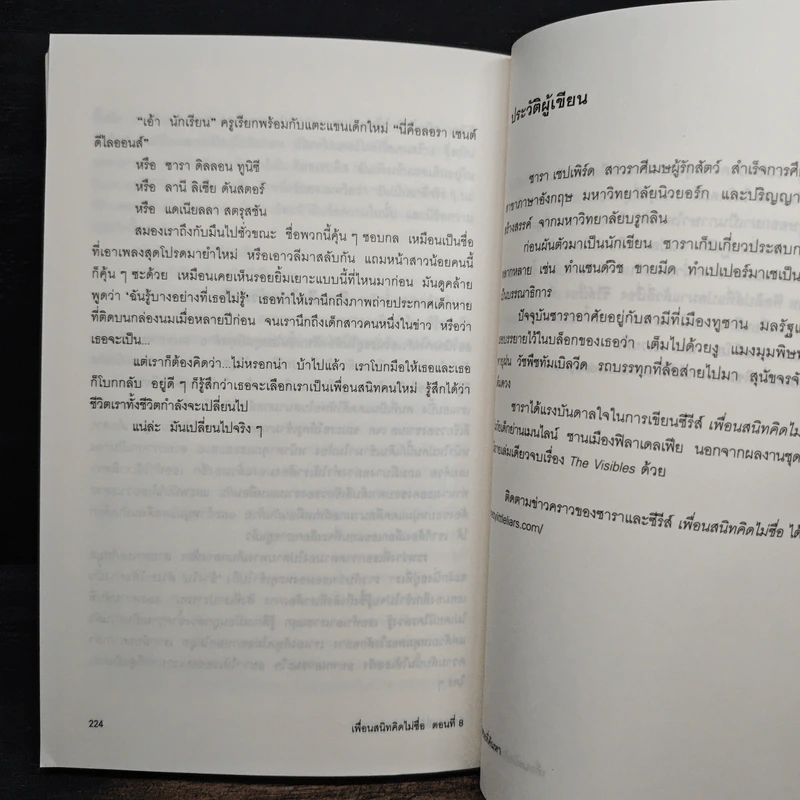 "เอ้า นักเรียน" ครูเรียกพร้อมกับแตะแขนเด็กใหม่ "นี่คือลอรา เซนต์
ดีไลออนส์"
หรือ ซารา ดิลลอน ทูนิซี
หรือ ลานี ลิเซีย ดันสตอร์
หรือ แดเนียลลา สตรุสซัน
สมองเราถึงกับมึนไปชั่วขณะ ชื่อพวกนี้คุ้น ๆ ชอบกล เหมือนเป็นชื่อ
ที่เอาเพลงสุดโปรดมายำใหม่ หรือเอาวลีมาสลับกัน แถมหน้าสาวน้อยคนนี้
ก็คุ้น ๆ ซะด้วย เหมือนเคยเห็นรอยยิ้มเยาะแบบนี้ที่ไหนมาก่อน มันดูคล้าย
พูดว่า 'ฉันรู้บางอย่างที่เธอไม่รู้' เธอทำให้เรานึกถึงภาพถ่ายประกาศเด็กหาย
ที่ติดบนกล่องนมเมื่อหลายปีก่อน จนเรานึกถึงเด็กสาวคนหนึ่งในข่าว หรือว่า
เธอจะเป็น...
แต่เราก็ต้องคิดว่า...ไม่หรอกน่า บ้าไปแล้ว เราโบกมือให้เธอและเธอ
ก็โบกกลับ อยู่ดี ๆ ก็รู้สึกว่าเธอจะเลือกเราเป็นเพื่อนสนิทคนใหม่ รู้สึกได้ว่า
ชีวิตเราทั้งชีวิตกำลังจะเปลี่ยนไป
แน่ล่ะ มันเปลี่ยนไปจริง ๆ
224
เพื่อนสนิทคิดไม่ซื่อ ตอนที่ 8
ประวัติผู้เขียน
ซารา เชปเพิร์ด สาวราศีเมษผู้รักสัตว์ สำเร็จการศึ
สาขาภาษาอังกฤษ มหาวิทยาลัยนิวยอร์ก และปริญญา
สร้างสรรค์ จากมหาวิทยาลัยบรูกลิน
ก่อนผันตัวมาเป็นนักเขียน ซาราเก็บเกี่ยวประสบก
หลากหลาย เช่น ทำแซนด์วิช ขายมีด ทำเปเปอร์มาเชเป็น
เป็นบรรณาธิการ
ปัจจุบันซาราอาศัยอยู่กับสามีที่เมืองทูซาน มลรัฐแ
บรรยายไว้ในบล็อกของเธอว่า เต็มไปด้วยงู แมงมุมพิษท
วัชพืชทัมเบิลวีด รถบรรทุกที่ล้อส่ายไปมา สุนัขจรจั
ซาราได้แรงบันดาลใจในการเขียนซีรีส์ เพื่อนสนิทคิดไม
ย่านเมนไลน์ ชานเมืองฟิลาเดลเฟีย นอกจากผลงานชุด
เล่มเดียวจบเรื่อง The Visibles ด้วย
ติดตามข่าวคราวของซาราและซีรีส์ เพื่อนสนิทคิดไม่ซื่อ ได้
ylittleliars.com/